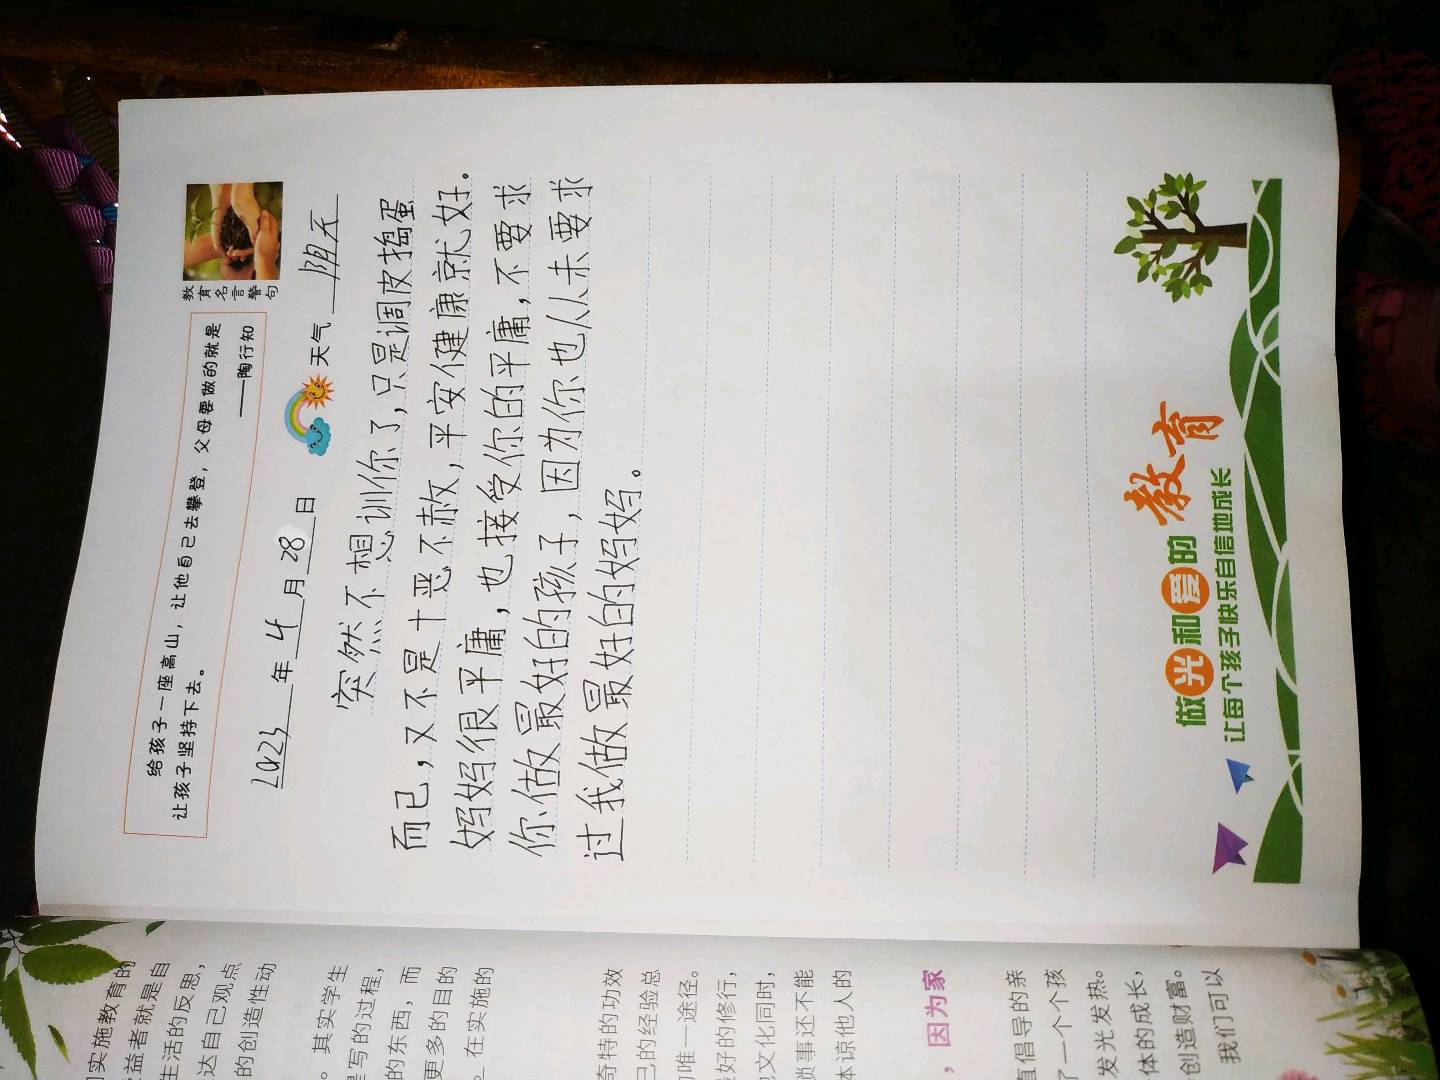 给孩子一座高山，让他自己去攀登，父母要做的就是
让孩子坚持下去。
——陶行知
教育名言警句
2023年4月28日 天气 阴天
突然不想训你了，只是调皮捣蛋
而已，又不是十恶不赦，平安健康就好。
妈妈很平庸，也接受你的平庸，不要求
你做最好的孩子，因为你也从未要求
过我做最好的妈妈。
做光和爱的教育
让每个孩子快乐自信地成长
实施教育的
益者就是自
生活的反思，
达自己观点
的创造性动
。其实学生
写的过程，
的东西，而
更多的目的
。在实施的
奇特的功效
己的经验总
唯一途径。
最好的修行，
文化同时，
琐事还不能
体谅他人的
，因为家
直倡导的亲
了一个个孩
发光发热。
体的成长，
创造财富。
我们可以